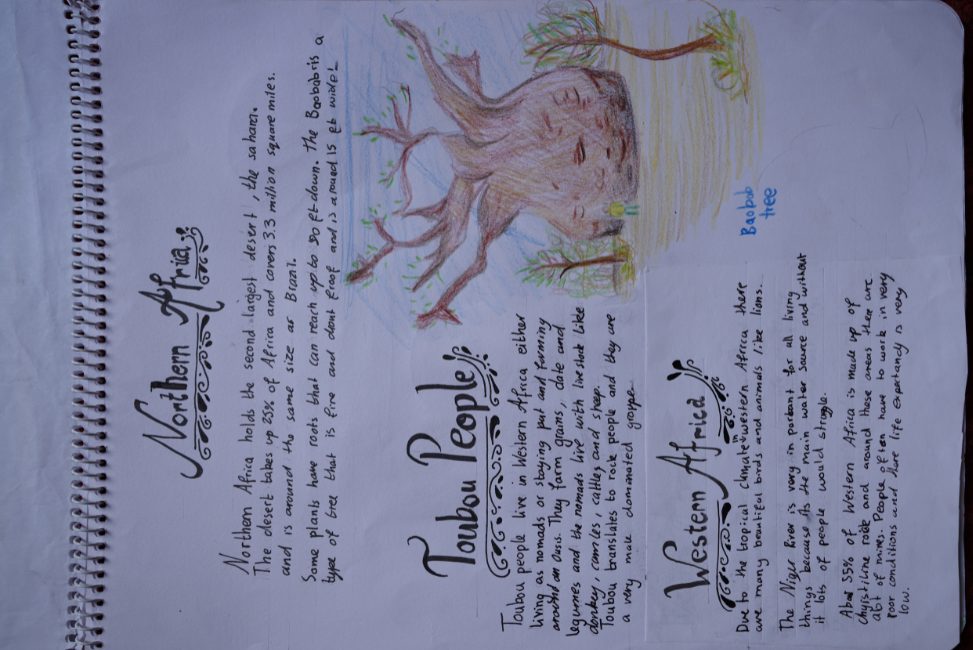 Northern Africa
Northern Africa holds the second largest desert, the sahara.
The desert takes up 25% of Africa and covers 3.3 million square miles.
and is around the same size as Brazil.
Some plants have roots that can reach up to 90 ft down. the Baobab is a
type of tree that is fire and drout proof and is around 15 ft wide!
Toubou People
Toubou people live in Western Africa either
living as nomads or staying put and farming
around an Oasis. They farm grains, date and
legumes and the nomads live with live stock like
donkey, camles, cattles and sheep.
Toubou translates to rock people and they are
a very male dominated groupe.
Baobab
tree
Western Africa
Due to the tropical climate in western Africa there
are many beautiful birds and animals like lions.
The Niger River is very in portant for all living
things because its the main water source and without
it lots of people would struggle.
About 55% of Western Africa is made up of
chrystiline rock and around these areas there are
a lot of mines. People often have to work in very
poor conditions and life expectancy is very
low.